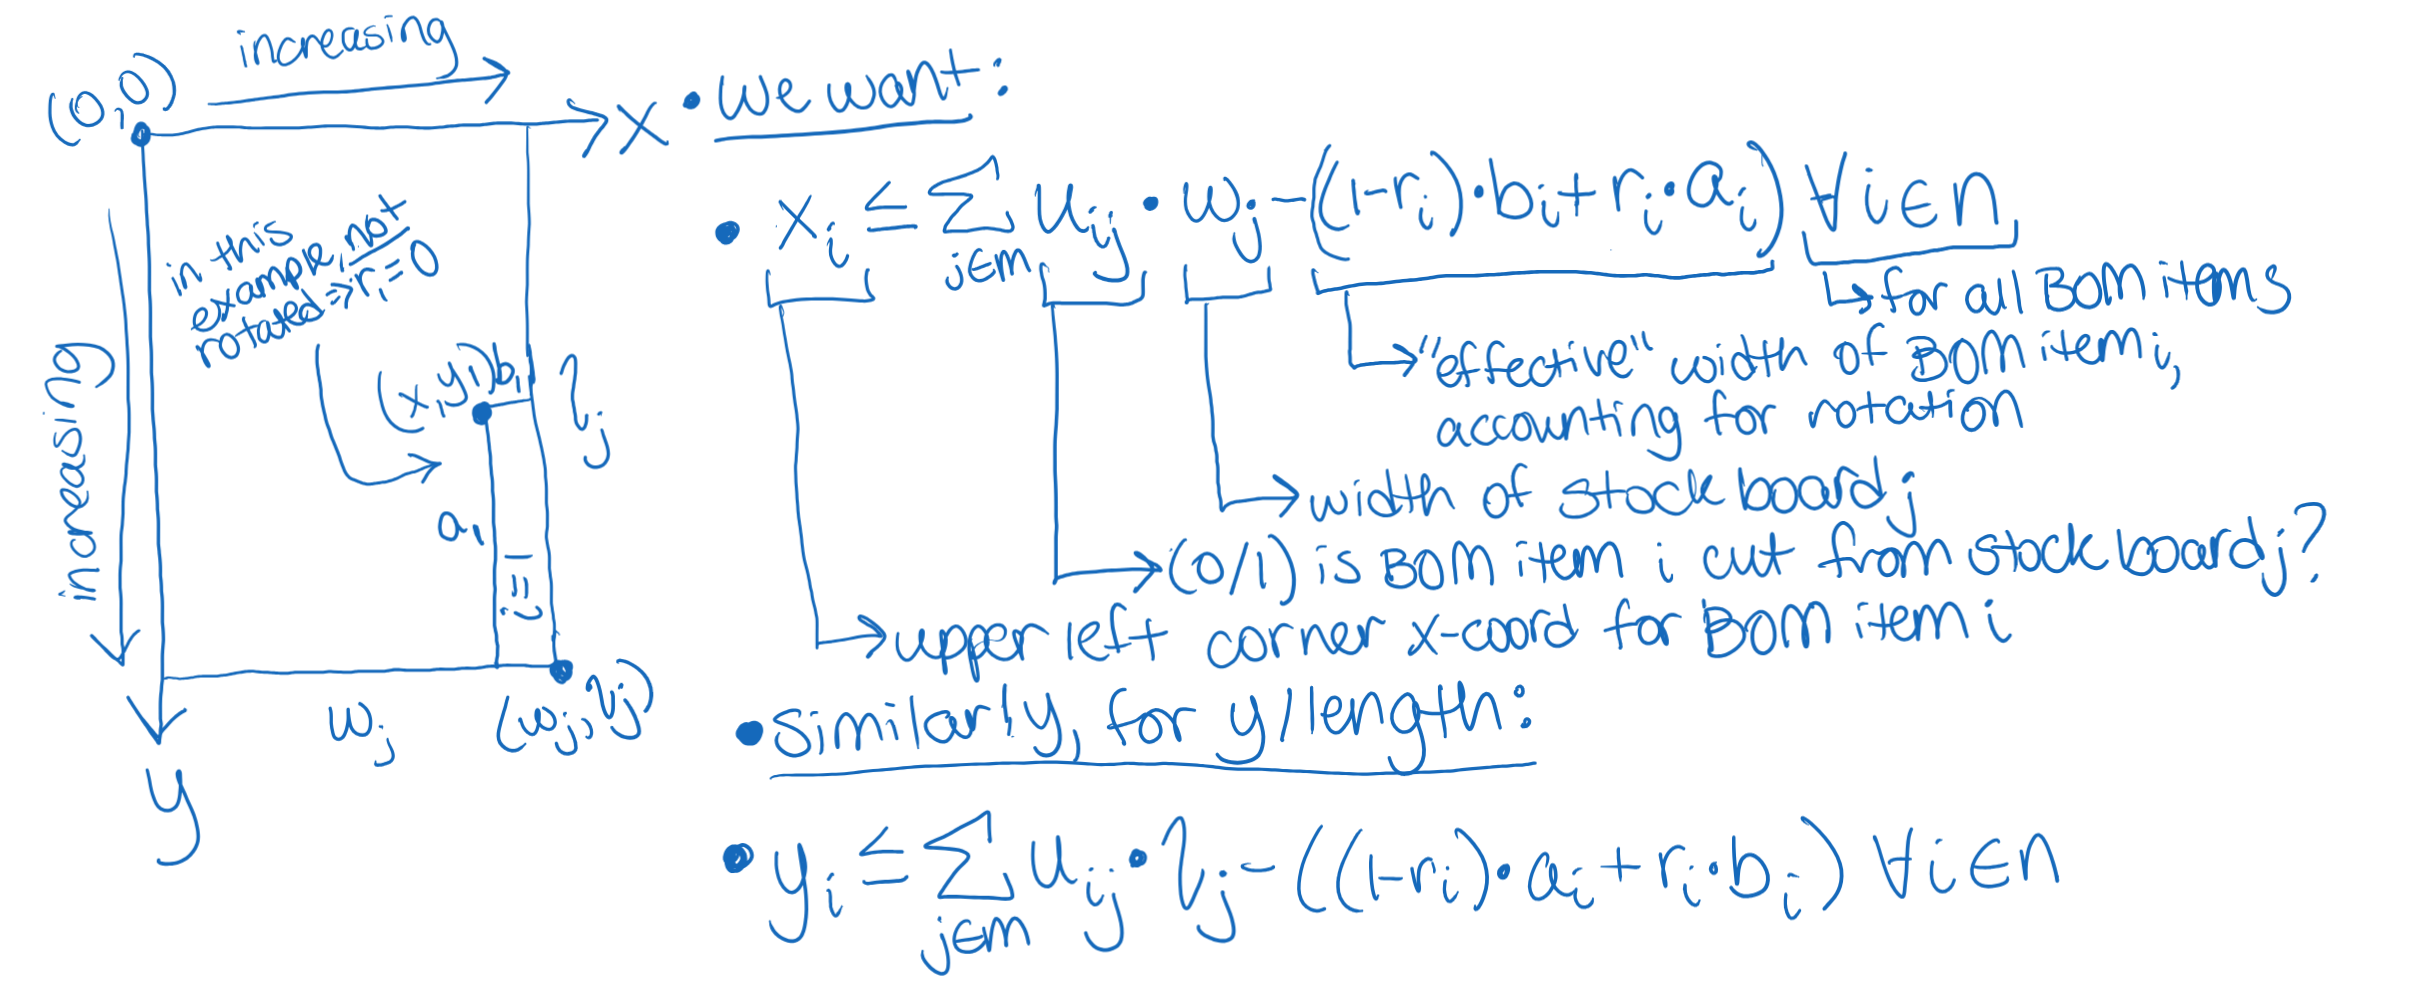 (0,0)
increasing
X
increasing
in this
example, not
rotated ⇒ r₁=0
(x₁,y₁) b₁
lⱼ
a₁
i=1
wⱼ
(wⱼ, lⱼ)
y
• We want:
• xᵢ ≤ ∑ uᵢⱼ • wⱼ - ((1-rᵢ)•bᵢ + rᵢ•aᵢ) ∀i∈n
j∈m
↳ for all BOM items
→ "effective" width of BOM item i,
accounting for rotation
→ width of stock board j
→ (0/1) is BOM item i cut from stock board j?
→ upper left corner x-coord for BOM item i
• Similarly, for y/length:
• yᵢ ≤ ∑ uᵢⱼ • lⱼ - ((1-rᵢ)•aᵢ + rᵢ•bᵢ) ∀i∈n
j∈m